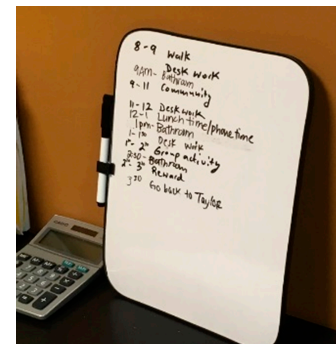 8-9 walk
Desk work
9AM- Bathroom
9-11 Community
11-12 Desk work
12-1 Lunch time/phone time
1pm- Bathroom
Desk work
Group activity
2:30- Bathroom
Reward
Go back to Taylor